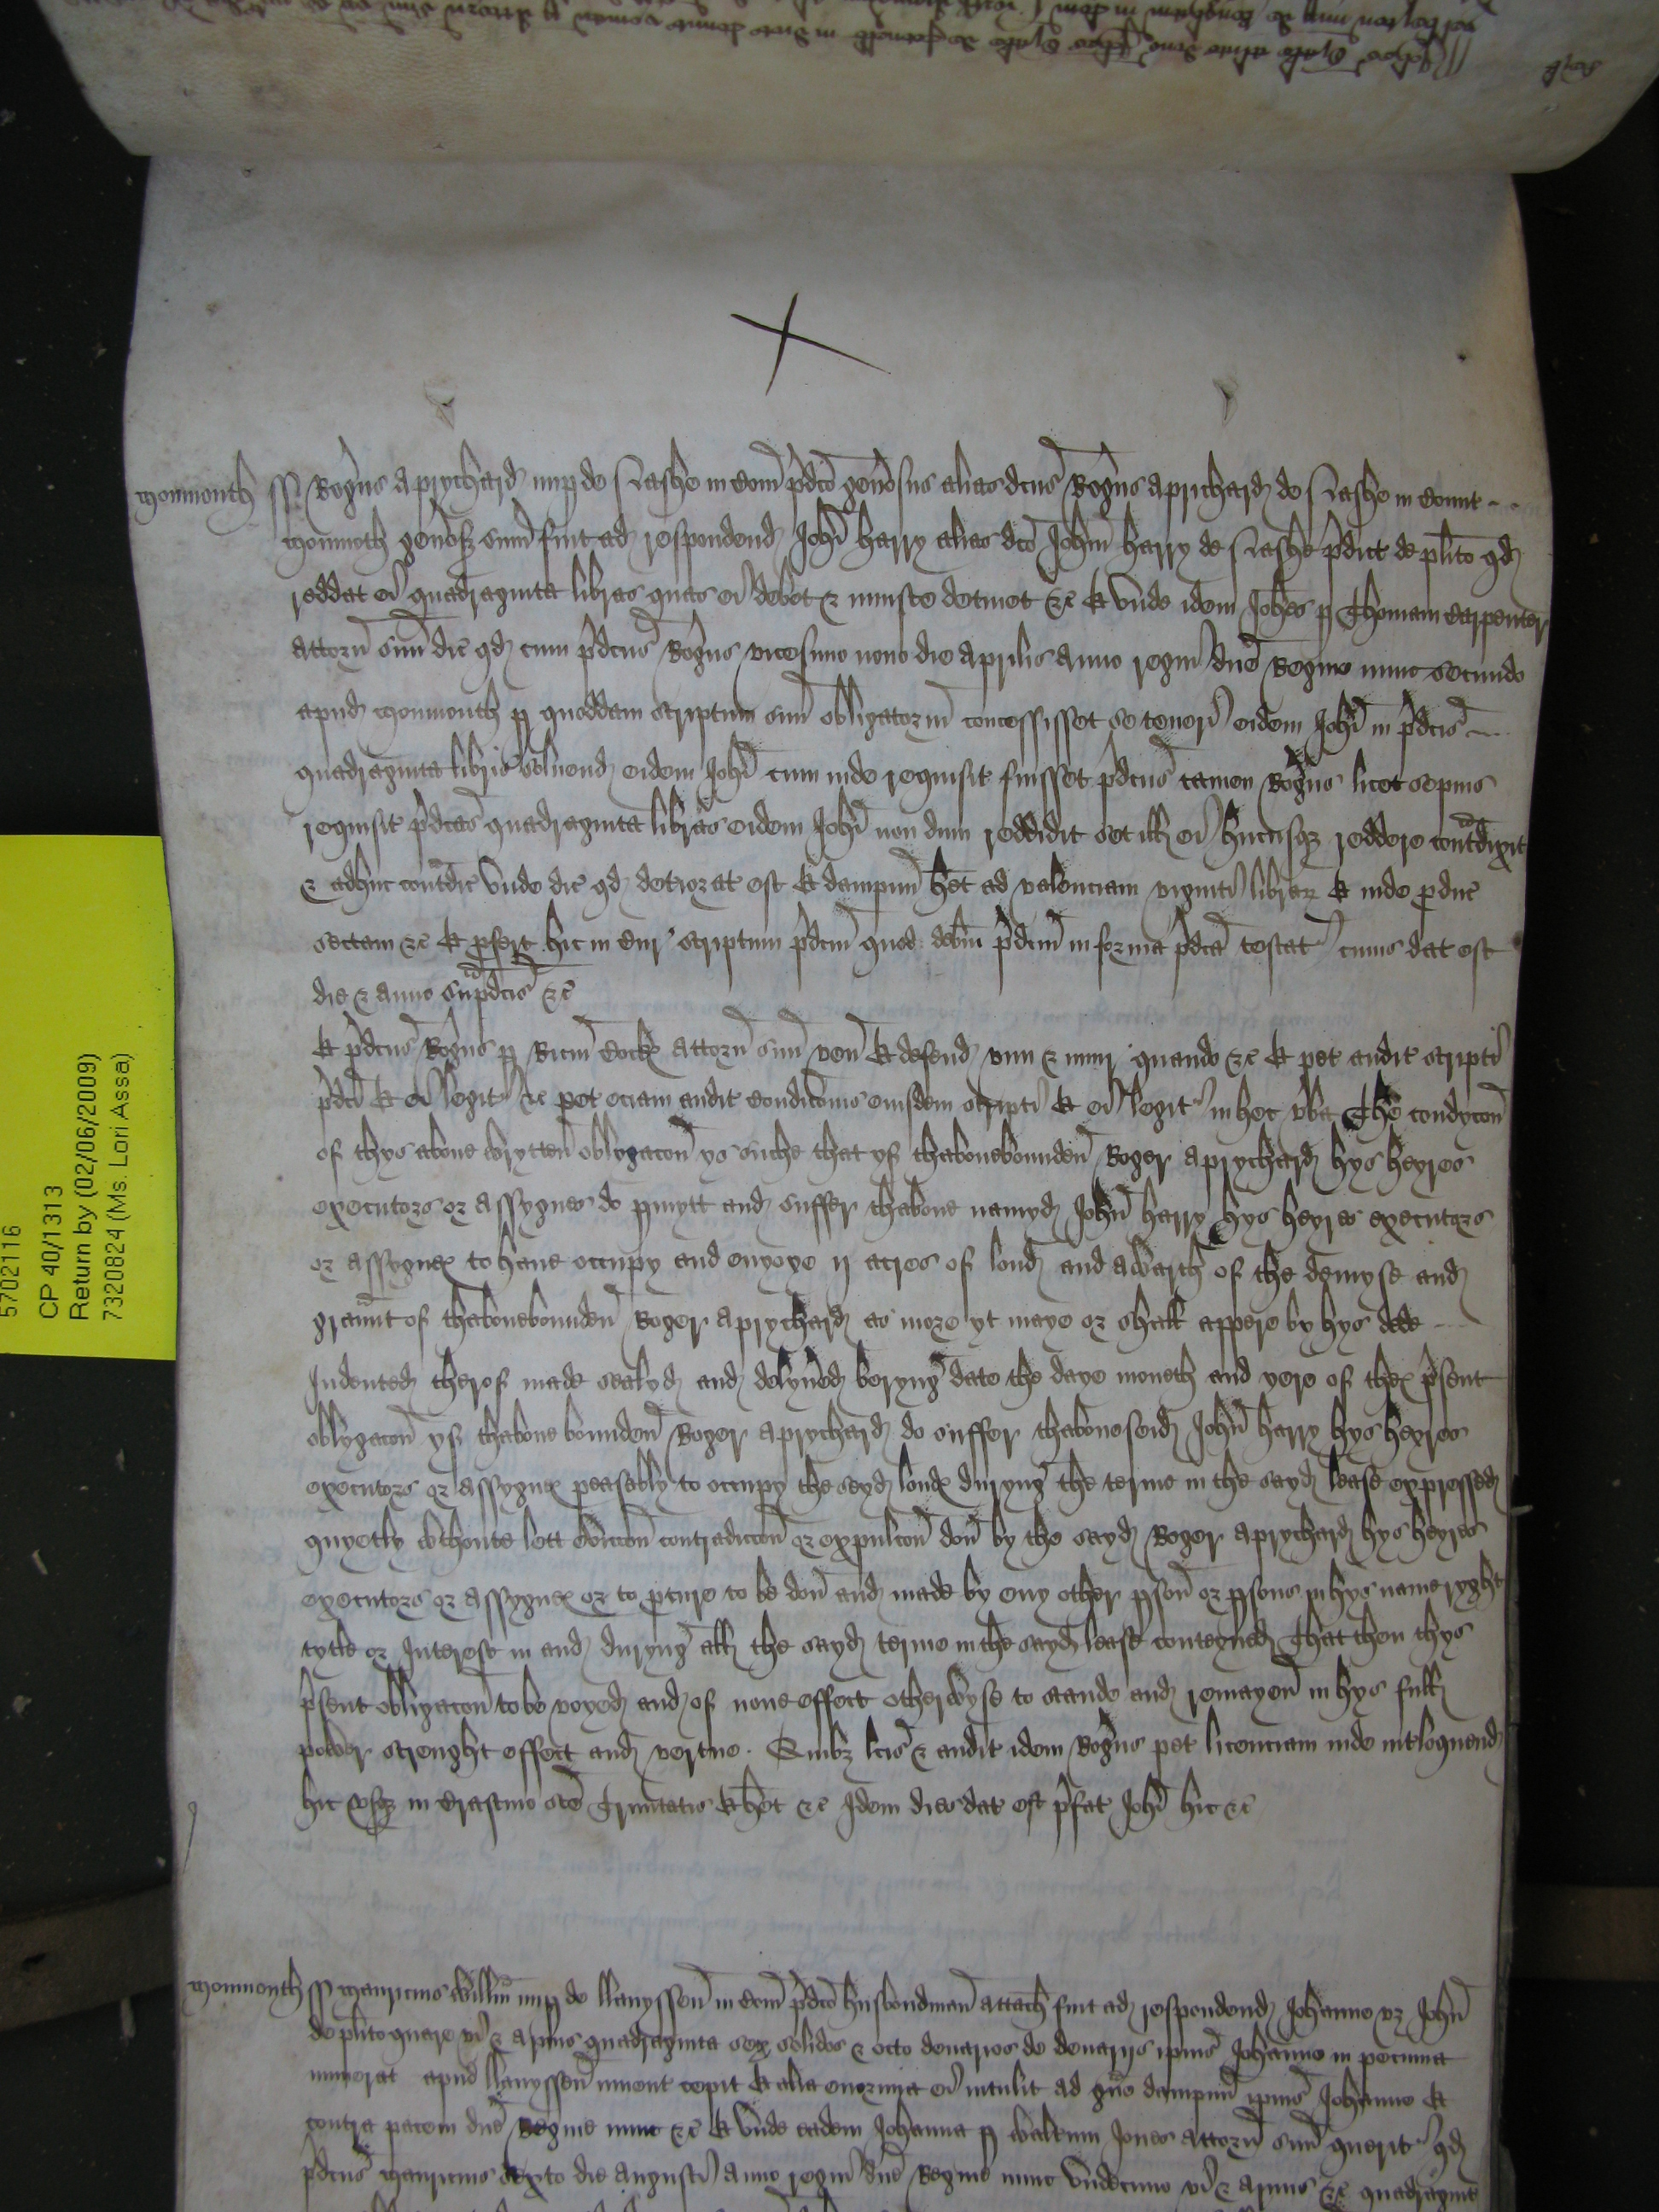 5702116
CP 40/1313
Return by (02/06/2009)
7320824 (Ms. Lori Assa)
Monmouth ss Rog'us Aprychard nup de Nashe in Com' p'dco gen'osus alias dcus Rog'us Aprichard de Nashe in Comit
Monmoth gen'osus sum' fuit ad respondend Joh'i Harry alias dco Joh'ni Harry de Nashe p'dict de pl'ito qd
reddat ei quadraginta libras quas ei debet & iniuste detinet &c Et unde idem Joh'es p Thomam Carpenter
attorn' suu' dic' qd cum p'dcus Rog'us vicesimo nono die Aprilis anno regni d'ne Regine nunc secundo
apud Monmouth p quoddam scriptum suu' obligatoriu' concessisset se teneri eidem Joh'i in p'dcis
quadraginta libris solvend eidem Joh'i cum inde requisit fuisset p'dcus tamen Rog'us licet sepius
requisit p'dcas quadraginta libras eidem Joh'i nondum reddidit set ill' ei hucusq reddere cont'dixit
& adhuc cont'dic' unde dic' qd deteriorat est Et dampnu' h'et ad valenciam viginti librar' Et inde p'duc'
sectam &c Et p'fert hic in Cur' scriptum p'dcm' quod debitu' p'dcm' in forma p'dca testat' cuius dat est
die & anno sup'dcis &c
Et p'dcus Rog'us p Ricm' Cocks Attorn' suu' ven' Et defend vim & iniur' quando &c Et pet audit scripti
p'dci Et ei legit' &c pet eciam audit Condic'onis eiusdem scripti Et ei legit' in hec v'ba The condycon'
of thys above wrytten' oblygacon' ys suche that yf thabovebounden' Roger Aprychard hys heyres
executors or assygnes do p'mytt and suffer thabove namyd John' Harry hys heyres executors
or assygnes to have occupy and enyoye ij acres of lond and A warth of the demyse and
graunt of thabovebounden' Roger Aprychard as more yt maye or shall appere by hys dede
Indented therof made sealyd and delyv'ed beryng date the daye moneth and yere of thes p'sent
oblygacon' yf thabove bounden' Roger Aprychard do suffer thaboveseid John' Harry hys heyres
executors or assygnes peasably to occupy the seyd londes duryng the terme in the sayd lease expressed
quyetly wthoute lett eviccon' contradiccon' or expulcon' don' by the sayd Roger Aprychard hys heyres
executors or assygnes or to p'cure to be don' and made by eny other p'son' or p'sons in hys name ryght
tytle or Interest in and duryng all the sayd terme in the sayd lease conteyned That then thys
p'sent obligacon' to be voyed and of none effect otherwyse to stande and remayen' in hys full
power strenght effect and vertue . Quibz l'cis & audit idem Rog'us pet licenciam inde int'loquend
hic usqz in Crastino sce' Trinitatis Et h'et &c Idem dies dat est p'fat Joh'i hic &c
Monmouth ss Mauricius Will'm nup de Llanyssen' in Com' p'dco husbondman' attach' fuit ad respondend Johanne vz John'
de pl'ito quare vi & armis quadraginta sex solidos & octo denarios de denarijs ip'ius Johanne in pecunia
numerat apud Llanyssen' invent cepit Et alia enormia ei intulit ad g've dampnu' ip'ius Johanne Et
contra pacem d'ne Regine nunc &c Et unde eadem Johanna p Walterum Jones attorn' suu' querit' qd
p'dcus Mauricius sexto die Augusti anno regni d'ne Regine nunc undecimo vi & armis &c quadraginta